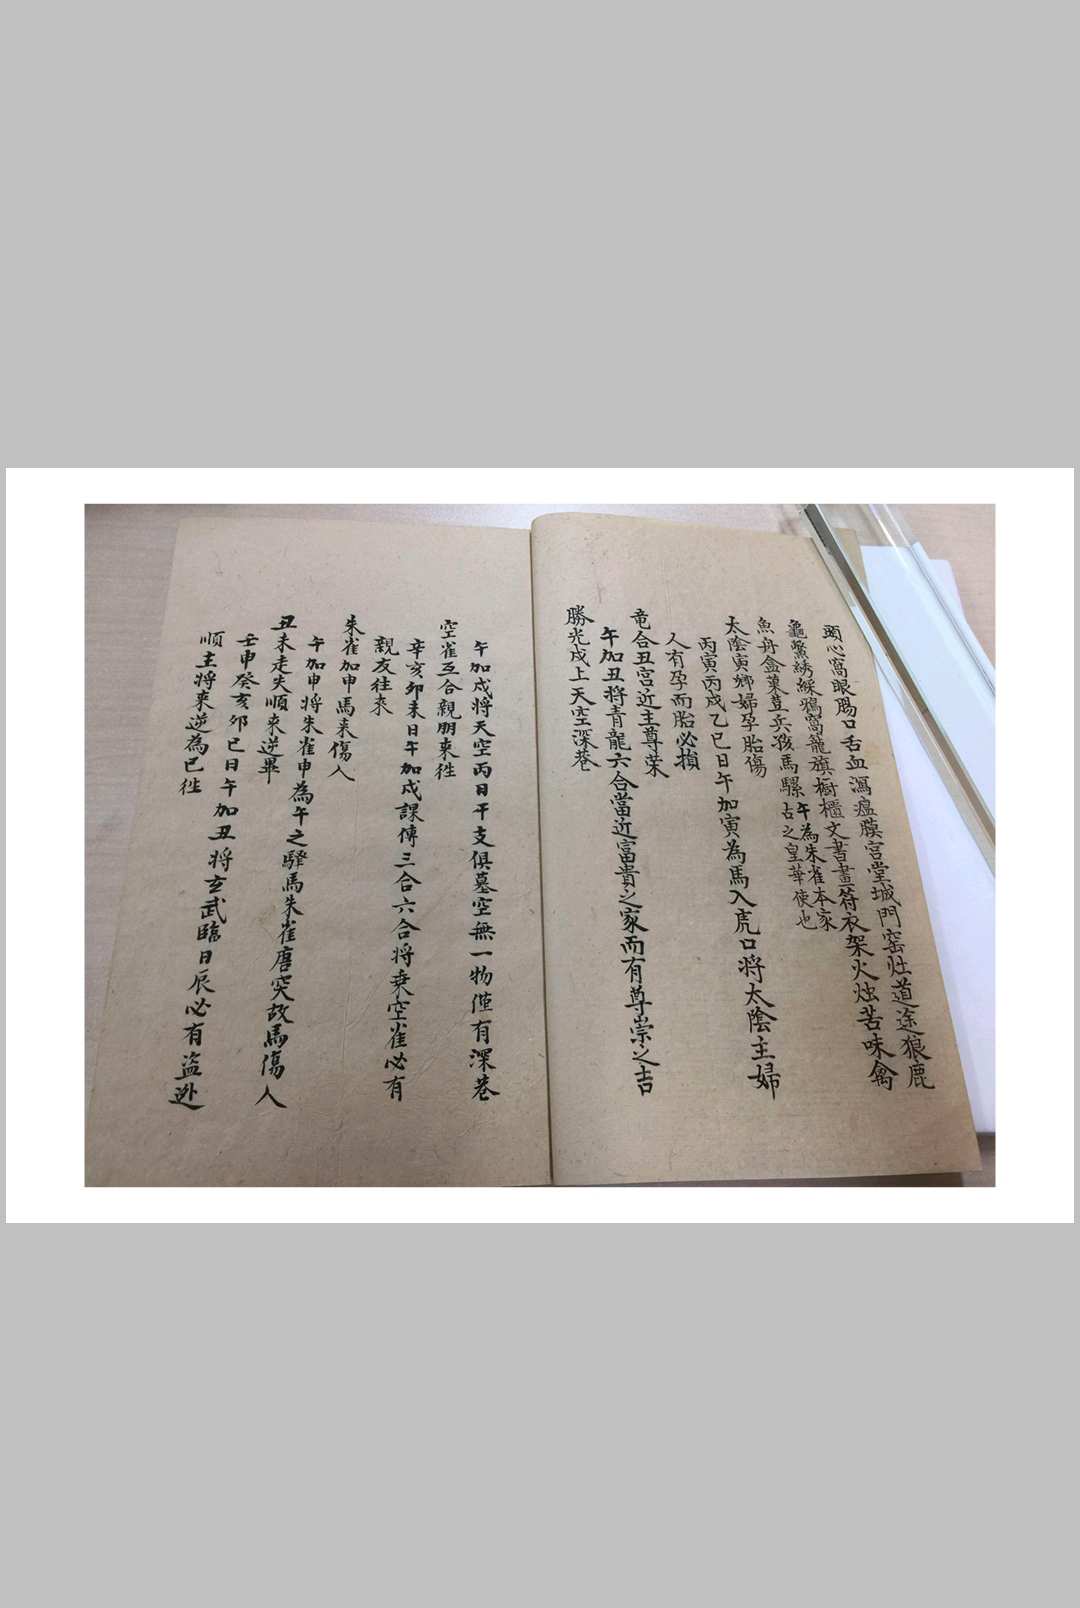 頭心窩眼腸口舌血瀉瘟膜宮堂城門窑灶道途狼鹿
龜鱉綉綵鴉窩籠旗橱櫃文書畫符衣架火烛苦味禽
魚舟盒菓荳兵孩馬騾午為朱雀本家古之皇華使也
太陰寅鄉婦孕胎傷
丙寅丙戌乙巳日午加寅為馬入虎口将太陰主婦
人有孕而胎必損
竜合丑宮近主尊荣
午加丑将青龍六合當近富貴之家而有尊崇之吉
勝光戍上天空深巷
午加戍将天空丙日干支俱墓空無一物僅有深巷
空雀互合親朋来徃
辛亥卯未日午加戍課傳三合六合将乗空雀必有
親友往来
朱雀加申馬来傷入
午加申将朱雀申為午之驛馬朱雀唐突故馬傷人
丑未走失順来逆畢
壬申癸亥卯巳日午加丑将玄武臨日辰必有盗逊
順主将来逆為已徃